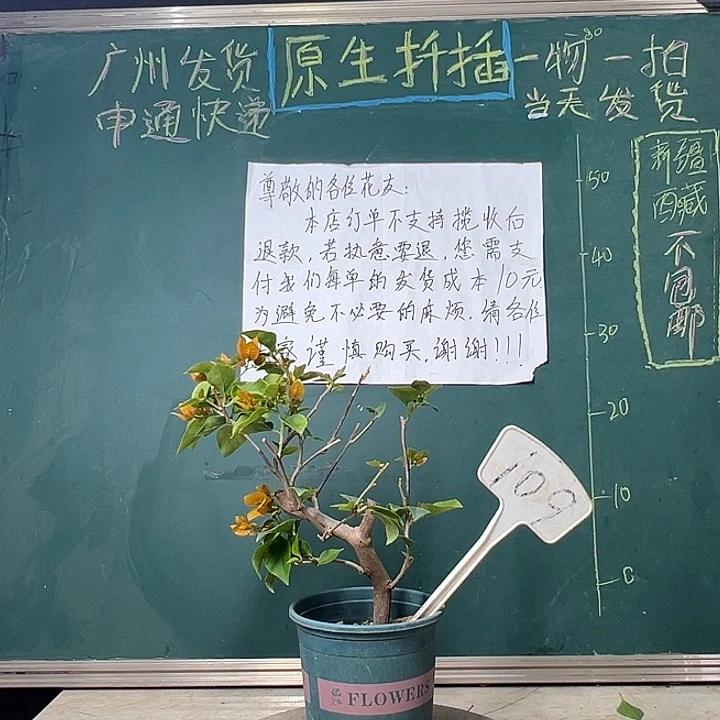 广州发货
申通快递
原生扦插
一物一拍
当天发货
尊敬的各位花友:
本店订单不支持揽收后
退款,若执意要退,您需支
付我们每单的发货成本10元
为避免不必要的麻烦.请各位
家谨慎购买,谢谢!!!
新疆
西藏
不
包
邮
50
40
30
20
10
0
109
FLOWERS